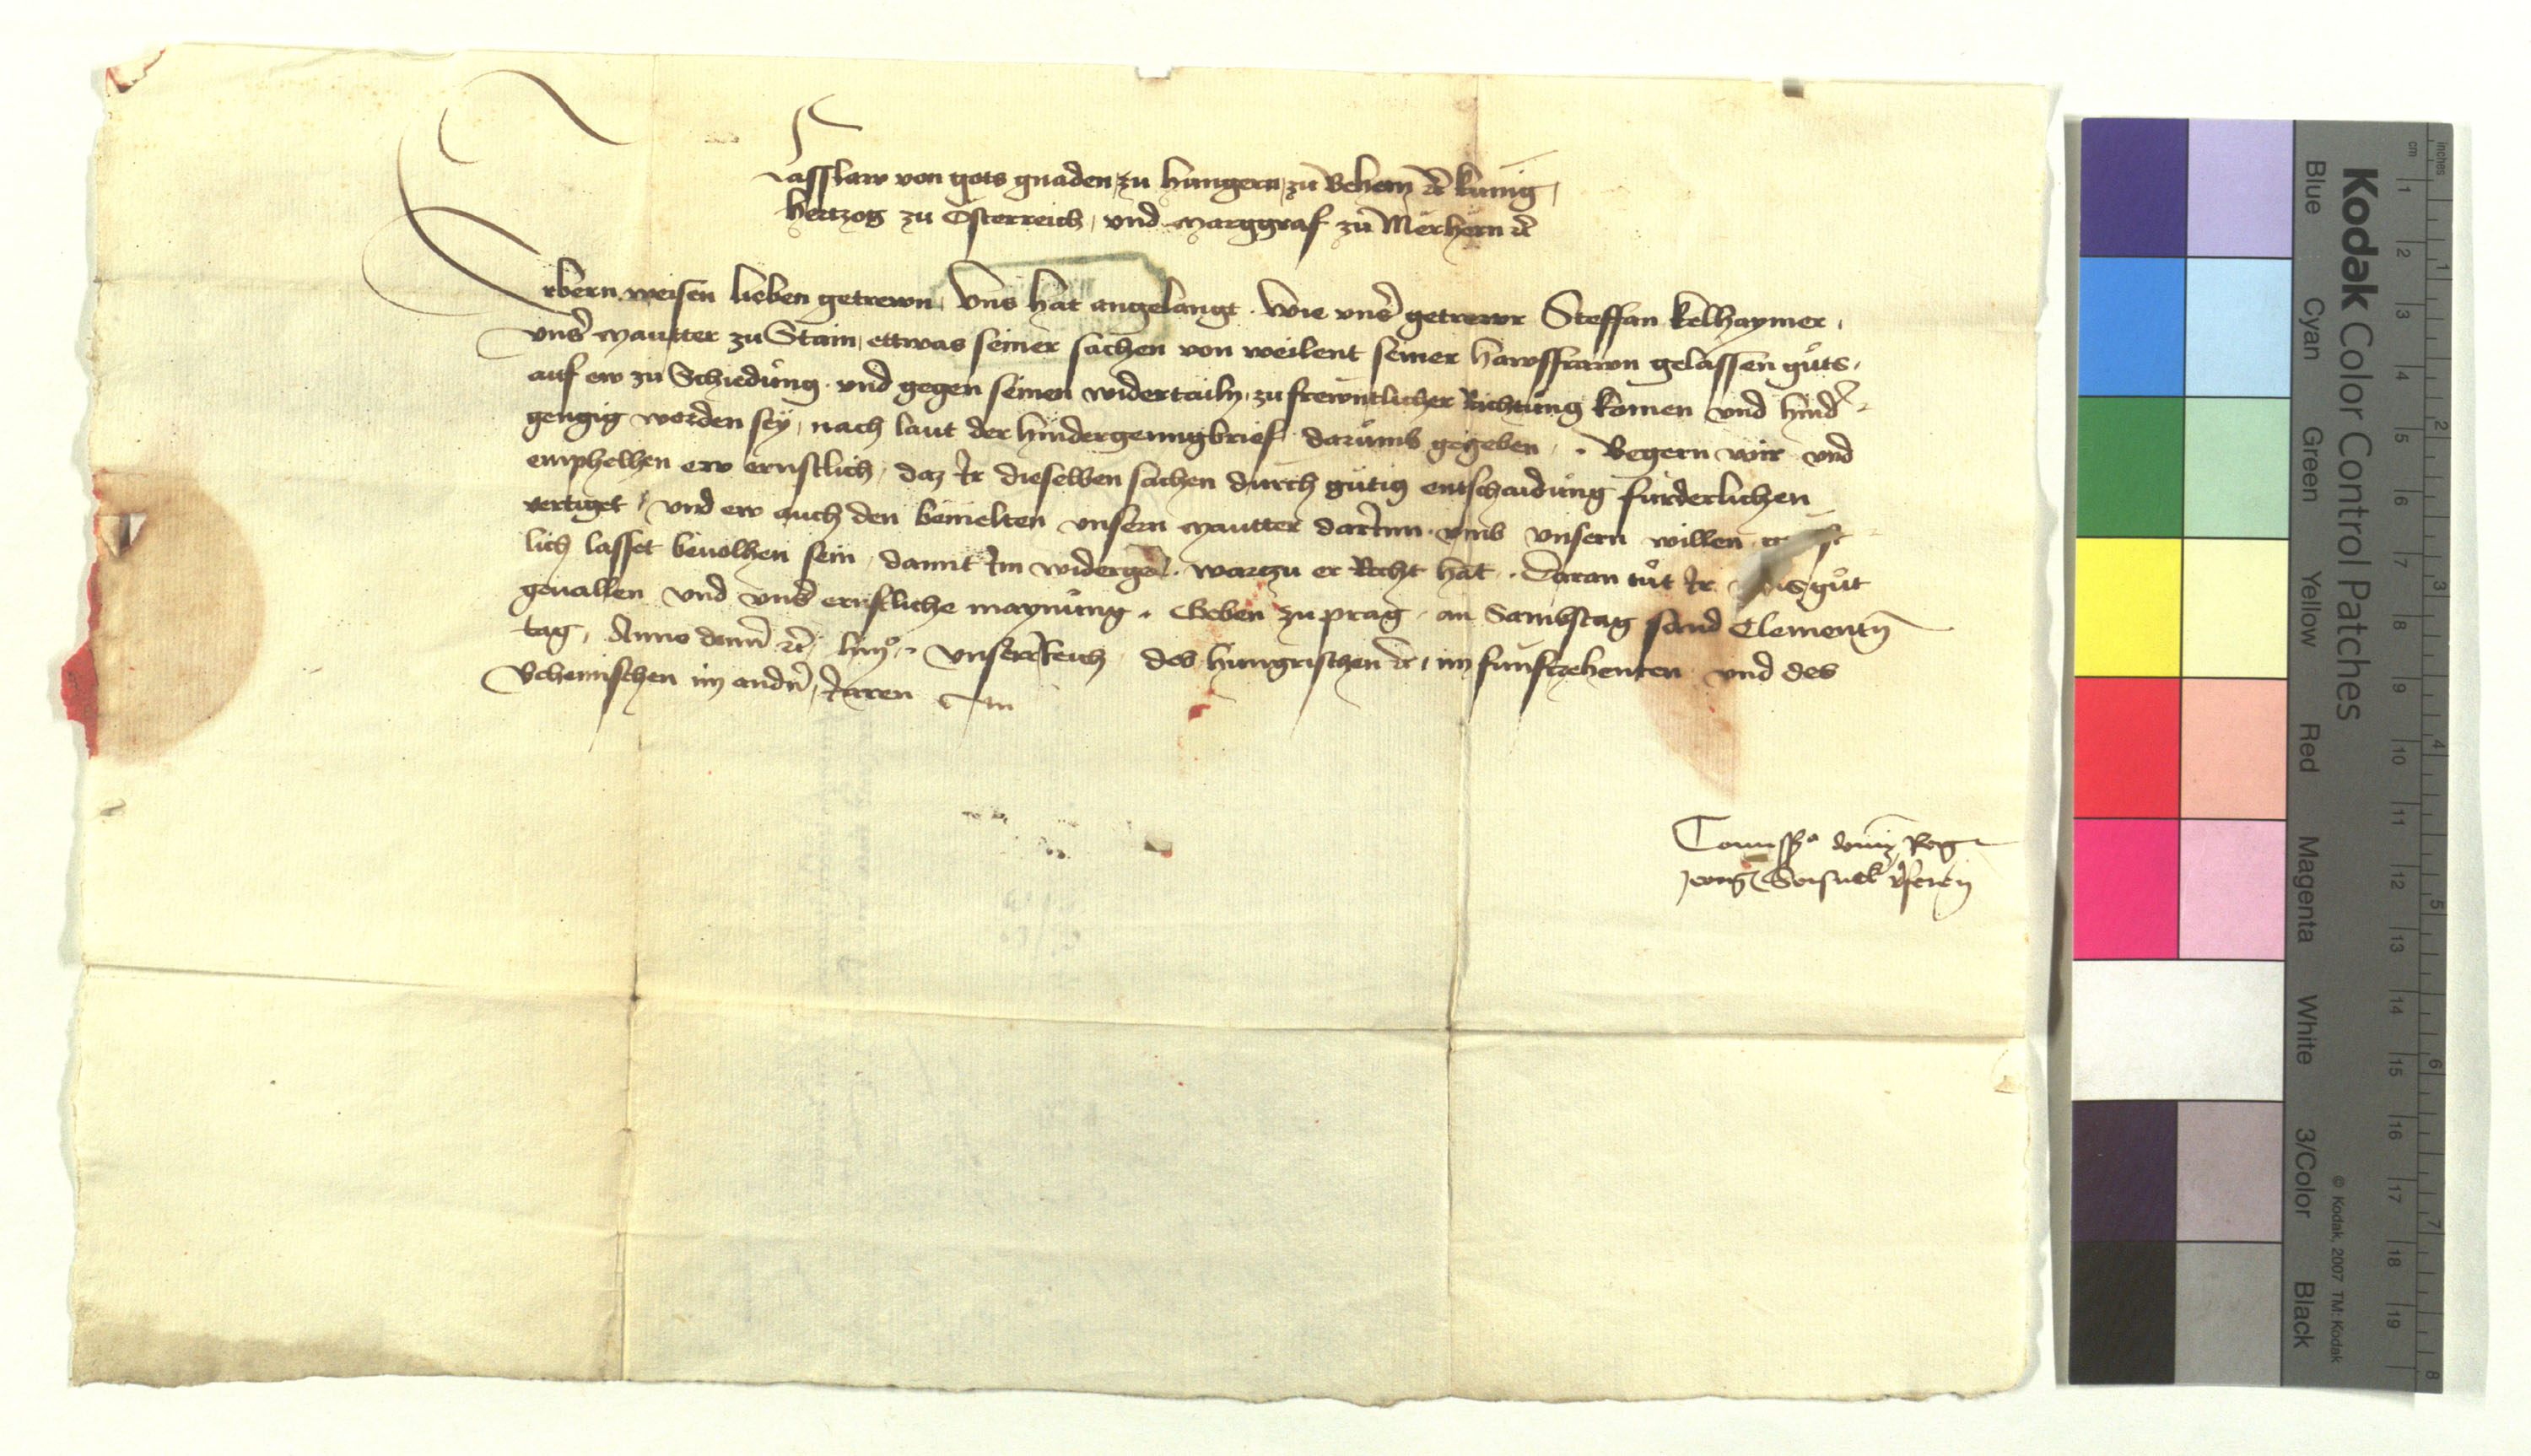 Lasslaw von gots gnaden, zu Hungern, zu Behem etc̃ kunig,
hertzog zu Osterreich, und Marggraf zu Merhern etc̃
Erbern weisen lieben getrewn, Uns hat angelangt. Wie unsẽ getrewr Steffan kelhaymer,
unsẽ Mautter zu Stain, ettwas seiner sachen von weilent seiner hawsfrawn gelassen gůts,
auf ew zu Schiedung. und gegen seinen widertailn, zu frewntlicher Richtung komen und hindẽ-
gengig worden sey, nach laut der hindergenngbrief darumb gegeben. Begern wir und
emphelhen ew ernstlich, daz Ir dieselben sachen durch gutig entschaidung furderlichen
vertiget, und ew auch den bemelten unsern Mautter darInn umb unsern willen
lich lasset bevolhen sein, damit Im widerge. warzu er Recht hat. Daran tůt Ir gůt
gevallen und unsẽ ernstliche maynung. Geben zu prag, an Sambstag sand Clementn̄
tag, Anno domĩ etc̃ liiijᵒ. Unserr Reich des hungrischen etc̃, im funftzehenten und des
Behemischen im andñ, Jaren
Comissᵒ domĩ Reg
Kodak Color Control Patches
Blue Cyan Green Yellow Red Magenta White 3/Color Black
© Kodak, 2007 TM: Kodak
cm 1 2 3 4 5 6 7 8 9 10 11 12 13 14 15 16 17 18 19
inches 1 2 3 4 5 6 7 8